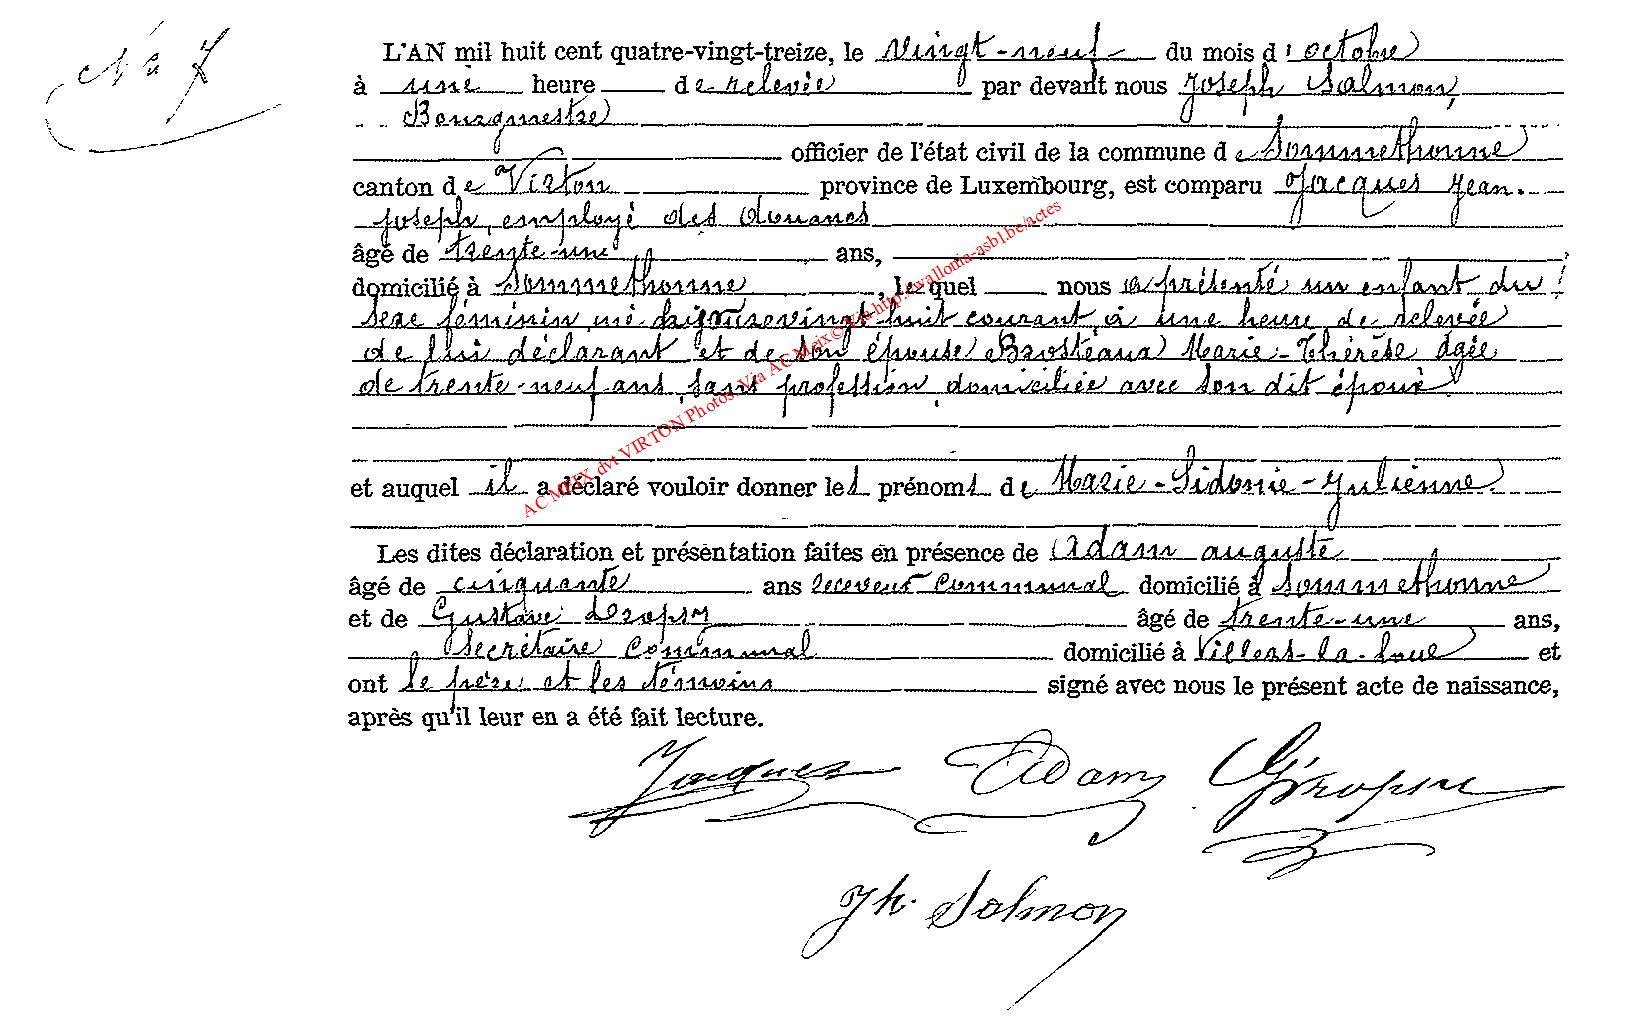 N° 7
L'AN mil huit cent quatre-vingt-treize, le vingt-neuf du mois d'octobre
à une heure de relevée par devant nous Joseph Salmon,
Bourgmestre
officier de l'état civil de la commune de Sommethonne
canton de Virton province de Luxembourg, est comparu Jacques Jean-
Joseph, employé des douanes
âgé de trente-une ans,
domicilié à Sommethonne, lequel nous a présenté un enfant du
sexe féminin né vingt-huit courant, à une heure de relevée
de lui déclarant et de son épouse Brosteaux Marie-Thérèse âgée
de trente-neuf ans, sans profession, domiciliée avec son dit époux
et auquel il a déclaré vouloir donner les prénoms de Marie-Sidonie-Julienne
Les dites déclaration et présentation faites en présence de Adam auguste
âgé de cinquante ans receveur communal domicilié à Sommethonne
et de Gustave Dropsy âgé de trente-une ans,
secrétaire communal domicilié à Villers-la-Loue et
ont le père et les témoins signé avec nous le présent acte de naissance,
après qu'il leur en a été fait lecture.
Jacques Adam GDropsy
Jh. Salmon
AC MEIX dvt VIRTON Photos Via AC Meix © Via http://wallonia-asbl.be/actes